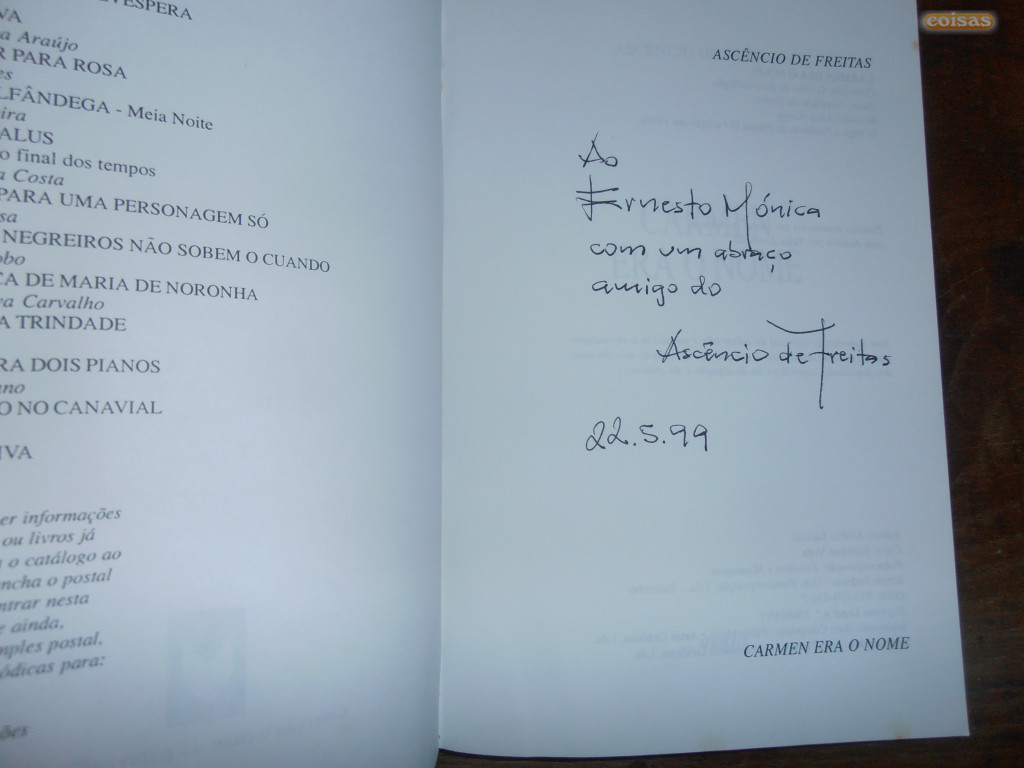 VÉSPERA
VA
a Araújo
R PARA ROSA
es
LFÂNDEGA - Meia Noite
ira
ALUS
o final dos tempos
a Costa
PARA UMA PERSONAGEM SÓ
sa
NEGREIROS NÃO SOBEM O CUANDO
obo
CA DE MARIA DE NORONHA
va Carvalho
A TRINDADE
RA DOIS PIANOS
ano
O NO CANAVIAL
IVA
er informações
ou livros já
o catálogo ao
ncha o postal
ntrar nesta
e ainda,
mples postal,
ódicas para:
ões
coisas
ASCÊNCIO DE FREITAS
Ao
Ernesto Mónica
com um abraço
amigo do
Ascêncio de Freitas
22.5.99
CARMEN ERA O NOME